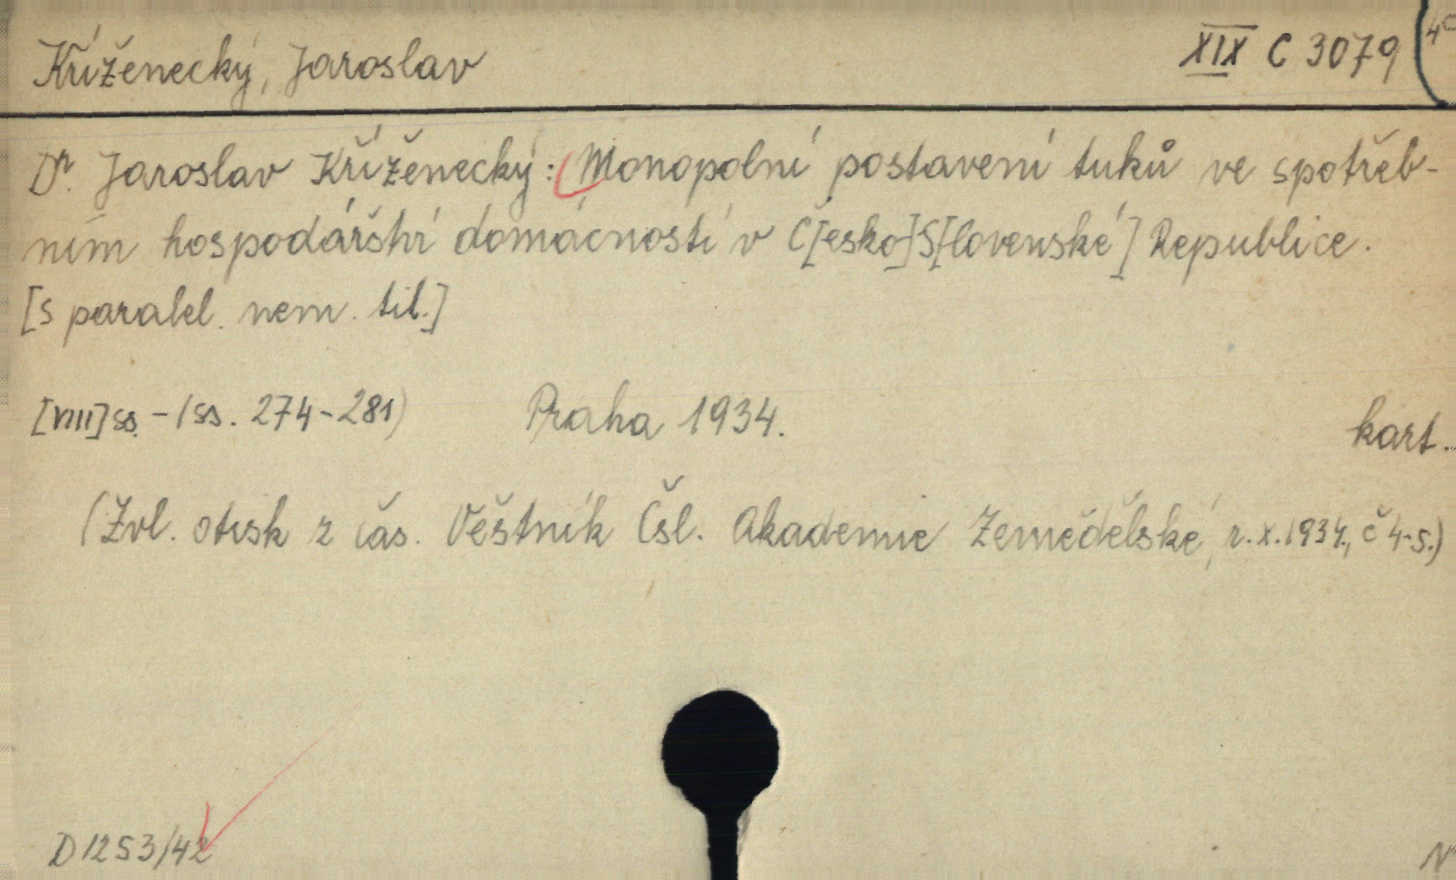 Kříženecký, Jaroslav XIX C 3079
Dr. Jaroslav Kříženecký: Monopolní postavení tuků ve spotřeb-
ním hospodářství domácností v Č[esko]S[lovenské] Republice.
[S paralel. nem. tit.]
[VIII] ss. - (ss. 274-281) Praha 1934. kart.
(Zvl. otisk z čas. Věštník Čsl. Akademie Zemědělské, r. X. 1934, č 4-5.)
D 1253/42